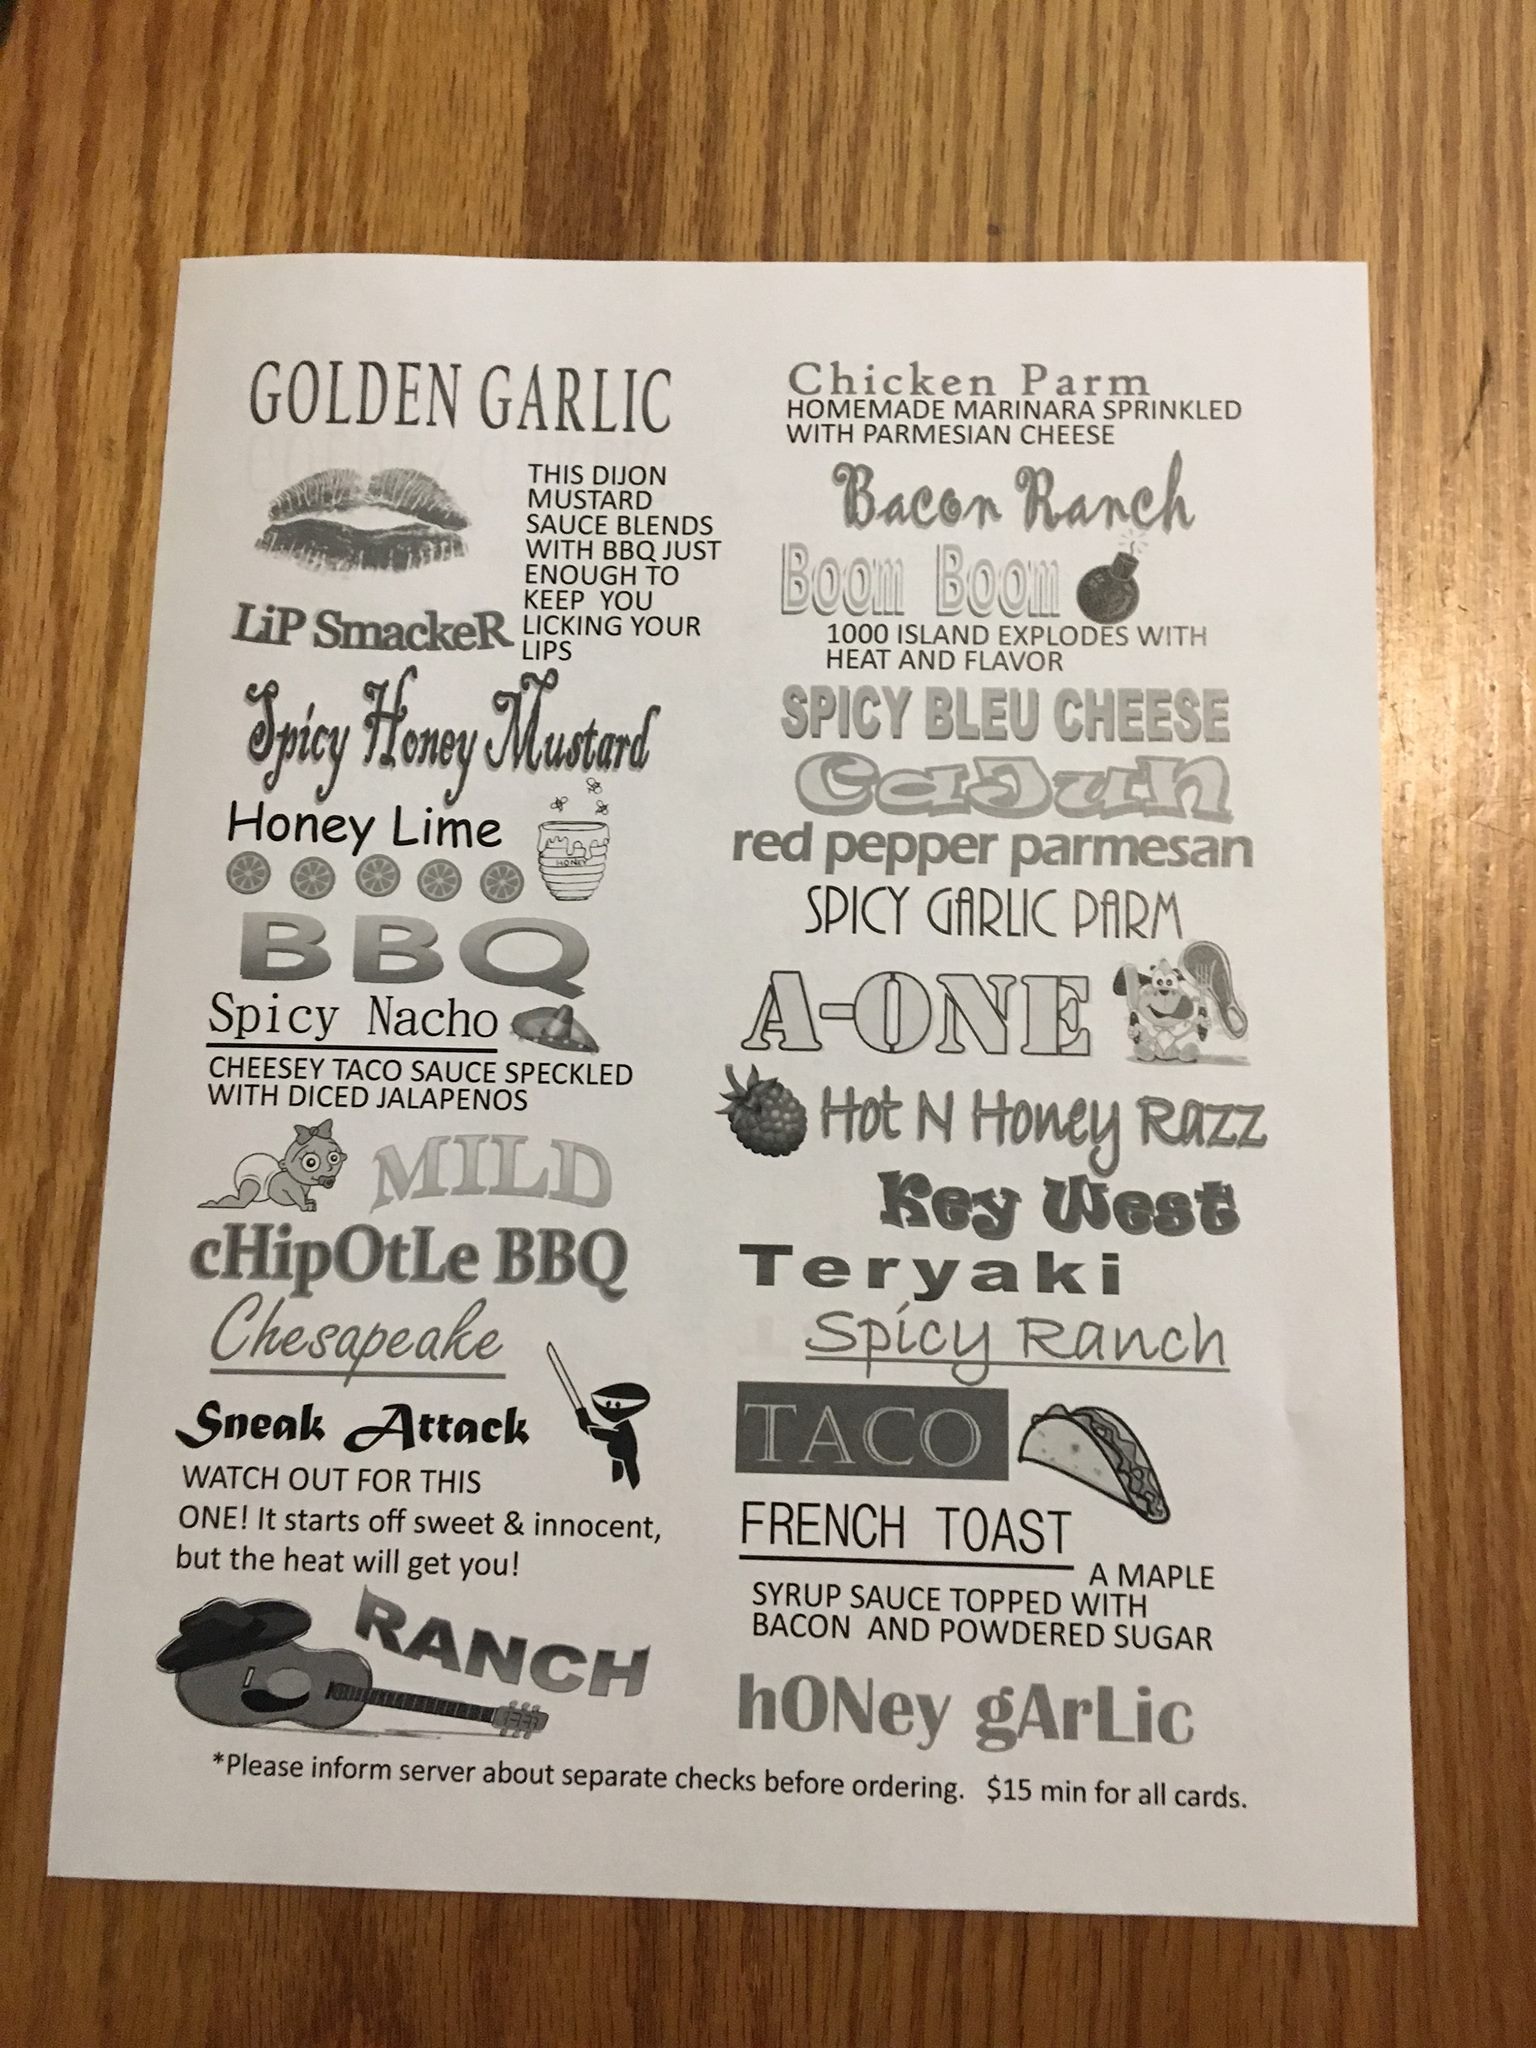 GOLDEN GARLIC
THIS DIJON
MUSTARD
SAUCE BLENDS
WITH BBQ JUST
ENOUGH TO
KEEP YOU
LICKING YOUR
LIPS
LiP SmackeR
Spicy Honey Mustard
Honey Lime
HONEY
BBQ
Spicy Nacho
CHEESEY TACO SAUCE SPECKLED
WITH DICED JALAPENOS
MILD
cHipOtLe BBQ
Chesapeake
Sneak Attack
WATCH OUT FOR THIS
ONE! It starts off sweet & innocent,
but the heat will get you!
RANCH
Chicken Parm
HOMEMADE MARINARA SPRINKLED
WITH PARMESIAN CHEESE
Bacon Ranch
Boom Boom
1000 ISLAND EXPLODES WITH
HEAT AND FLAVOR
SPICY BLEU CHEESE
CaJun
red pepper parmesan
SPICY GARLIC PARM
A-ONE
Hot N Honey Razz
Key West
Teryaki
Spicy Ranch
TACO
FRENCH TOAST
A MAPLE
SYRUP SAUCE TOPPED WITH
BACON AND POWDERED SUGAR
hONey gArLic
*Please inform server about separate checks before ordering. $15 min for all cards.